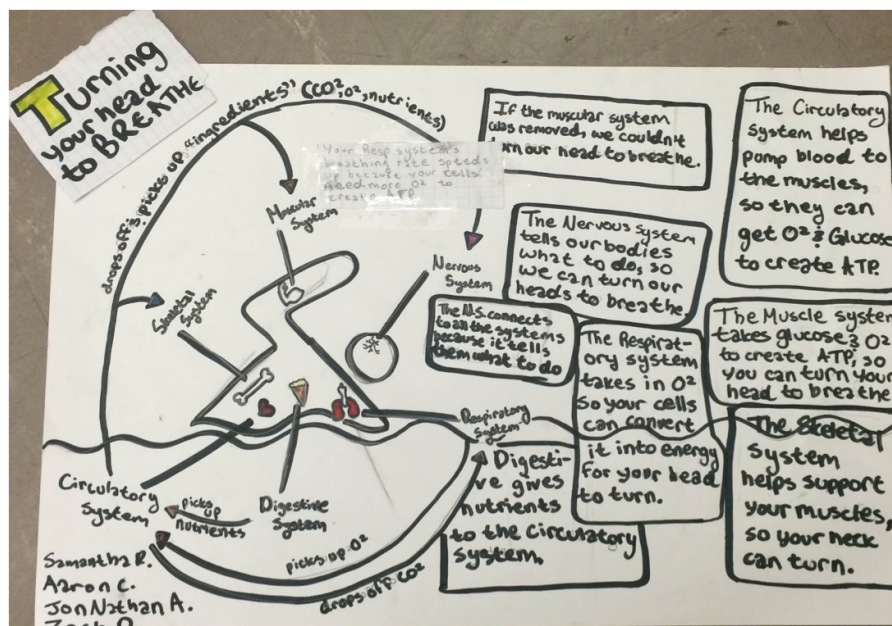 Turning
your head
to BREATHE
drops off & picks up "ingredients" (CO², O², nutrients)
Your Resp system's
breathing rate speeds
up because your cells
need more O² to
create ATP.
Muscular
System
Skeletal
System
Nervous
System
Respiratory
System
Circulatory
System
picks
up
nutrients
Digestive
System
picks up O²
drops off CO²
Samantha R.
Aaron C.
JonNathan A.
If the muscular system
was removed, we couldn't
turn our head to breathe.
The Nervous system
tells our bodies
what to do, so
we can turn our
heads to breathe.
The N.S. connects
to all the systems
because it tells
them what to do
The Respirat-
ory system
takes in O²
so your cells
can convert
it into energy
for your head
to turn.
Digesti-
ve gives
nutrients
to the Circulatory
System.
The Circulatory
System helps
pump blood to
the muscles,
so they can
get O² & Glucose
to create ATP.
The Muscle system
takes glucose & O²
to create ATP, so
you can turn your
head to breathe
The Skeletal
System
helps support
your muscles,
so your neck
can turn.